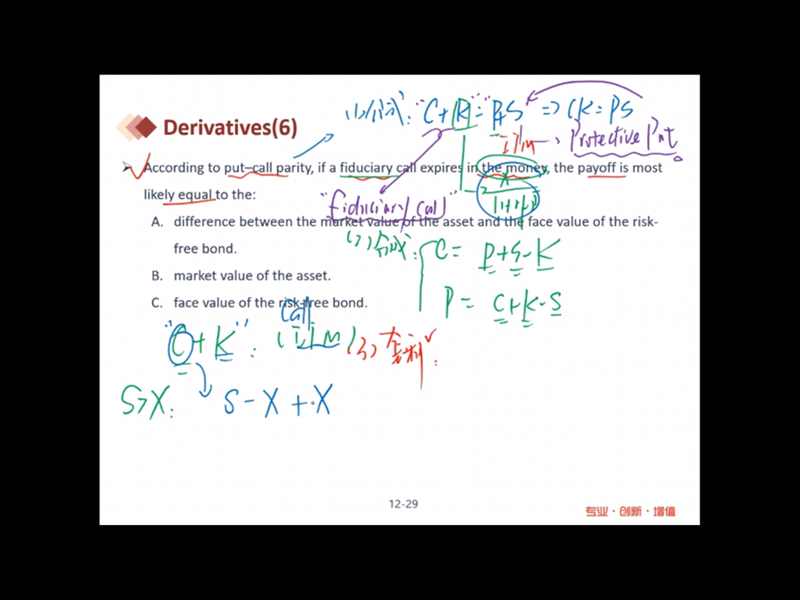 (1)公式: "C+K" = P+S => CK=PS
Derivatives(6)
ITM → Protective Put
According to put–call parity, if a fiduciary call expires in the money, the payoff is most
likely equal to the:
"fiduciary call"
A. difference between the market value of the asset and the face value of the risk-
free bond.
(2) 合成: C = P+S-K
B. market value of the asset.
P = C+K-S
C. face value of the risk-free bond.
call
"C+K": ITM (3) 套利:
S>X: S-X+X
12-29
专业·创新·增值